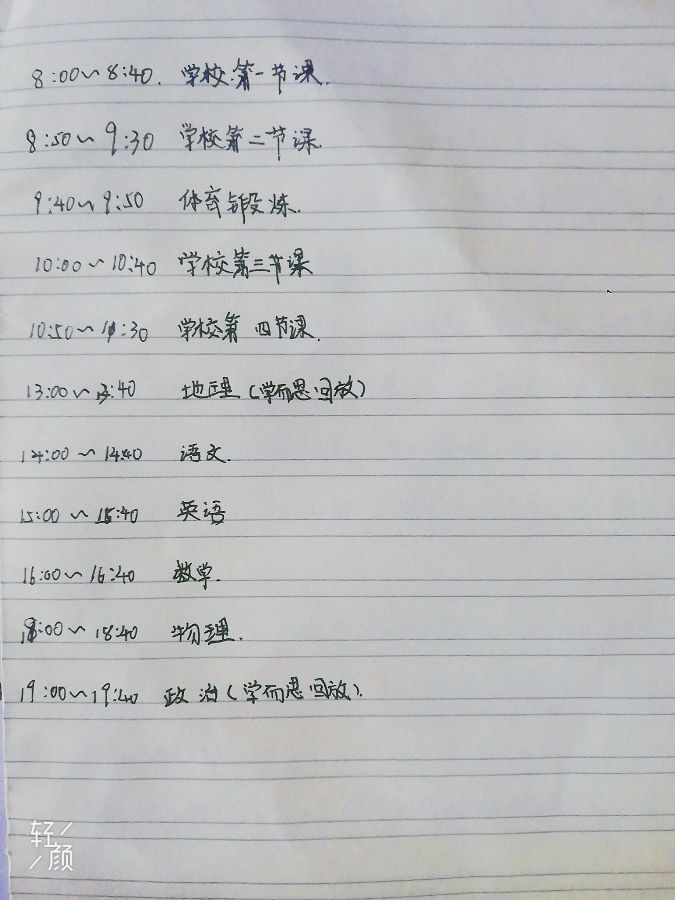 8:00~8:40. 学校第一节课.
8:50~9:30 学校第二节课.
9:40~9:50 体育锻炼.
10:00~10:40 学校第三节课
10:50~11:30 学校第四节课.
13:00~13:40 地理(学而思回放)
14:00~14:40 语文.
15:00~15:40 英语
16:00~16:40 数学.
18:00~18:40 物理.
19:00~19:40 政治(学而思回放).
轻
颜